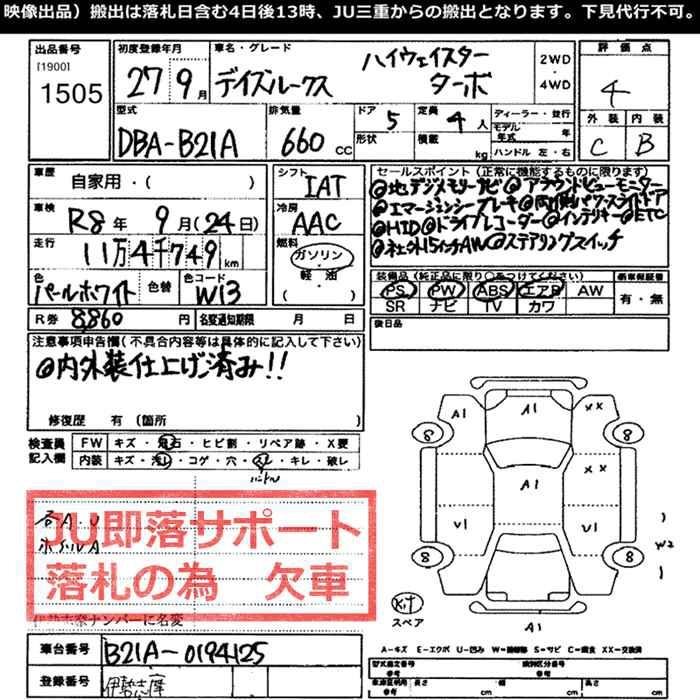 映像出品）搬出は落札日含む4日後13時、JU三重からの搬出となります。下見代行不可。
出品番号
[1900]
1505
初度登録年月
27 9月
車名・グレード
デイズルークス
ハイウェイスター
ターボ
2WD
・
4WD
評価点
4
外装 内装
C B
型式
DBA-B21A
排気量
660 CC
ドア
5
形状
定員
4人
積載
kg
ディーラー・並行
モデル年式 年
ハンドル 左・右
車歴
自家用・( )
車検
R8年 9月(24日)
走行
11万4千749km
色
パールホワイト
色替
色コード
W13
シフト
IAT
冷房
AAC
燃料
ガソリン・
軽・油
( )
セールスポイント（正常に機能するものに限る）
@地デジメモリーナビ@アラウンドビューモニター
@エマージェンシーブレーキ@両側パワースライドドア
@HID@ドライブレコーダー@インテリキー@ETC
@社外15インチAW@ステアリングスイッチ
装備品（純正品に限り○をつけてください）
PS PW ABS エアB AW
SR ナビ TV カワ
新車保証書
有・無
後日品
R券 8,860 円
名変通知期限 月 日
注意事項申告欄（不具合内容等は具体的に記入して下さい）
@内外装仕上げ済み!!
修復歴 有（箇所 ）
検査員
記入欄
FW キズ・飛石・ヒビ割・リペア跡・X要
内装 キズ・汚レ・コゲ・穴・スレ・キレ・破レ
ハンドル
各A.U
ホイルA
JU即落サポート
落札の為 欠車
伊勢志摩ナンバーに名変
車台番号
B21A-0194125
登録番号
伊勢志摩
A1 A1 XX
8 8
A1 XX
U1 U1
8 8
W2
Kit
スペア
A1
A-キズ E-エクボ U-凹み W-補修跡 S-サビ C-腐食 XX-交換済
型式指定番号
類別区分番号
車庫証明用 長さ cm 幅 cm 高さ cm